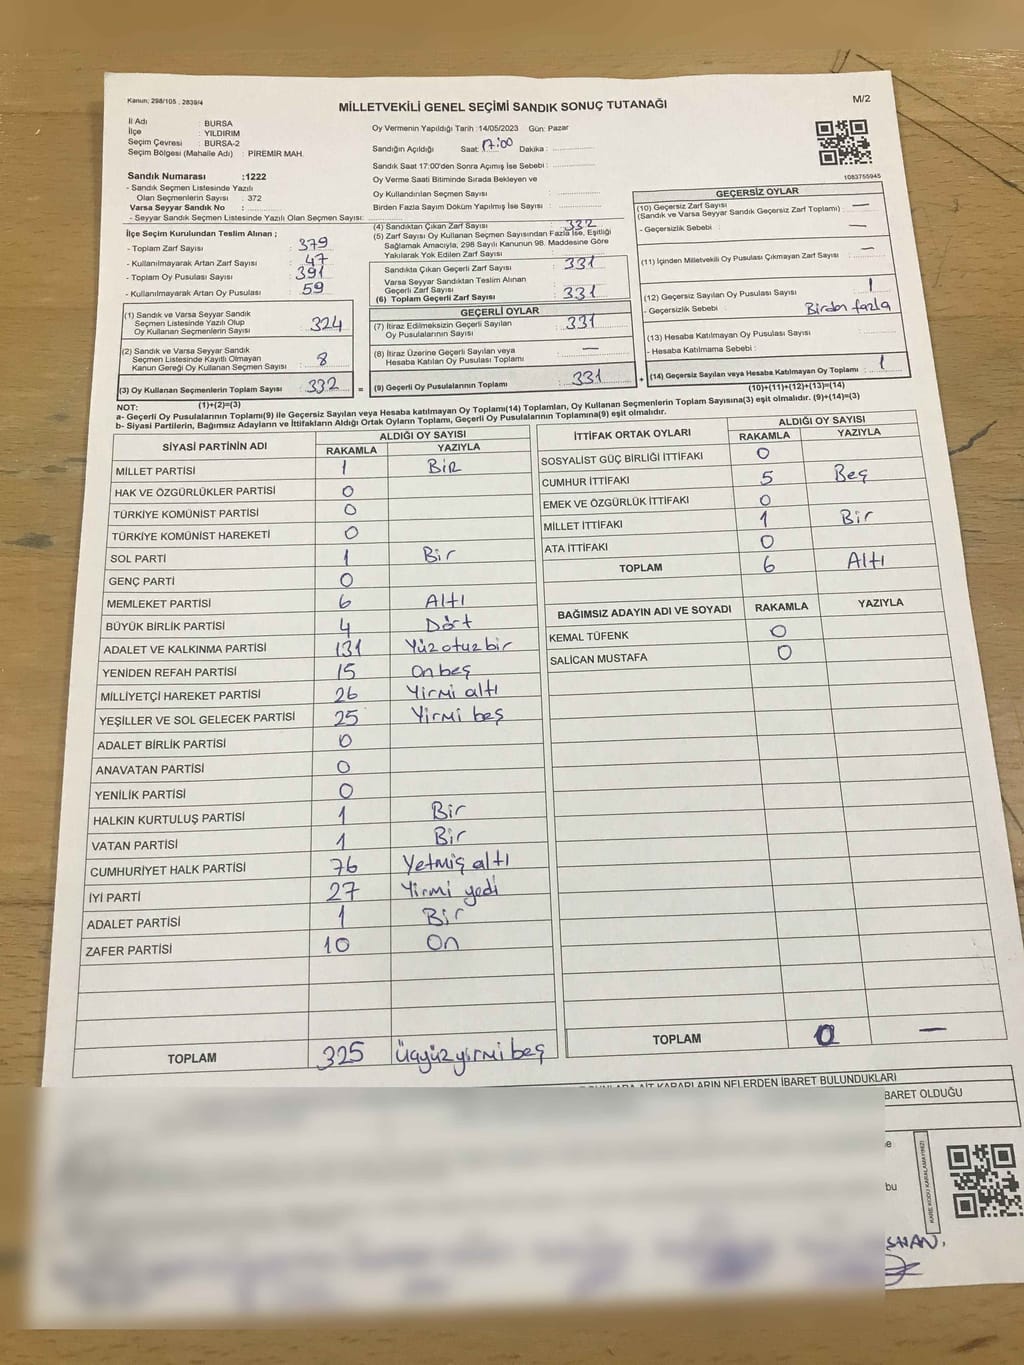 Kanun; 298/105 , 2839/4
MİLLETVEKİLİ GENEL SEÇİMİ SANDIK SONUÇ TUTANAĞI
M/2
İl Adı : BURSA
İlçe : YILDIRIM
Seçim Çevresi : BURSA-2
Seçim Bölgesi (Mahalle Adı) : PİREMİR MAH.
Sandık Numarası :1222
- Sandık Seçmen Listesinde Yazılı
Olan Seçmenlerin Sayısı : 372
Varsa Seyyar Sandık No :
- Seyyar Sandık Seçmen Listesinde Yazılı Olan Seçmen Sayısı:
Oy Vermenin Yapıldığı Tarih :14/05/2023 Gün: Pazar
Sandığın Açıldığı Saat: 17:00 Dakika :
Sandık Saat 17:00'den Sonra Açımış İse Sebebi :
Oy Verme Saati Bitiminde Sırada Bekleyen ve
Oy Kullandırılan Seçmen Sayısı :
Birden Fazla Sayım Döküm Yapılmış İse Sayısı :
1083755945
İlçe Seçim Kurulundan Teslim Alınan ;
- Toplam Zarf Sayısı : 379
- Kullanılmayarak Artan Zarf Sayısı : 47
- Toplam Oy Pusulası Sayısı : 391
- Kullanılmayarak Artan Oy Pusulası : 59
(1) Sandık ve Varsa Seyyar Sandık
Seçmen Listesinde Yazılı Olup
Oy Kullanan Seçmenlerin Sayısı : 324
(2) Sandık ve Varsa Seyyar Sandık
Seçmen Listesinde Kayıtlı Olmayan
Kanun Gereği Oy Kullanan Seçmen Sayısı : 8
(3) Oy Kullanan Seçmenlerin Toplam Sayısı : 332 =
(1)+(2)=(3)
(4) Sandıktan Çıkan Zarf Sayısı : 332
(5) Zarf Sayısı Oy Kullanan Seçmen Sayısından Fazla İse, Eşitliği
Sağlamak Amacıyla, 298 Sayılı Kanunun 98. Maddesine Göre
Yakılarak Yok Edilen Zarf Sayısı :
Sandıkta Çıkan Geçerli Zarf Sayısı : 331
Varsa Seyyar Sandıktan Teslim Alınan
Geçerli Zarf Sayısı :
(6) Toplam Geçerli Zarf Sayısı : 331
GEÇERLİ OYLAR
(7) İtiraz Edilmeksizin Geçerli Sayılan
Oy Pusulalarının Sayısı : 331
(8) İtiraz Üzerine Geçerli Sayılan veya
Hesaba Katılan Oy Pusulası Toplamı : —
(9) Geçerli Oy Pusulalarının Toplamı : 331 +
GEÇERSİZ OYLAR
(10) Geçersiz Zarf Sayısı : —
(Sandık ve Varsa Seyyar Sandık Geçersiz Zarf Toplamı)
- Geçersizlik Sebebi : —
(11) İçinden Milletvekili Oy Pusulası Çıkmayan Zarf Sayısı : —
(12) Geçersiz Sayılan Oy Pusulası Sayısı : 1
- Geçersizlik Sebebi : Birden fazla
(13) Hesaba Katılmayan Oy Pusulası Sayısı :
- Hesaba Katılmama Sebebi :
(14) Geçersiz Sayılan veya Hesaba Katılmayan Oy Toplamı : 1
(10)+(11)+(12)+(13)=(14)
NOT:
a- Geçerli Oy Pusulalarının Toplamı(9) ile Geçersiz Sayılan veya Hesaba katılmayan Oy Toplamı(14) Toplamları, Oy Kullanan Seçmenlerin Toplam Sayısına(3) eşit olmalıdır. (9)+(14)=(3)
b- Siyasi Partilerin, Bağımsız Adayların ve İttifakların Aldığı Ortak Oyların Toplamı, Geçerli Oy Pusulalarının Toplamına(9) eşit olmalıdır.
SİYASİ PARTİNİN ADI ALDIĞI OY SAYISI
RAKAMLA YAZIYLA
MİLLET PARTİSİ 1 Bir
HAK VE ÖZGÜRLÜKLER PARTİSİ 0
TÜRKİYE KOMÜNİST PARTİSİ 0
TÜRKİYE KOMÜNİST HAREKETİ 0
SOL PARTİ 1 Bir
GENÇ PARTİ 0
MEMLEKET PARTİSİ 6 Altı
BÜYÜK BİRLİK PARTİSİ 4 Dört
ADALET VE KALKINMA PARTİSİ 131 Yüz otuz bir
YENİDEN REFAH PARTİSİ 15 On beş
MİLLİYETÇİ HAREKET PARTİSİ 26 Yirmi altı
YEŞİLLER VE SOL GELECEK PARTİSİ 25 Yirmi beş
ADALET BİRLİK PARTİSİ 0
ANAVATAN PARTİSİ 0
YENİLİK PARTİSİ 0
HALKIN KURTULUŞ PARTİSİ 1 Bir
VATAN PARTİSİ 1 Bir
CUMHURİYET HALK PARTİSİ 76 Yetmiş altı
İYİ PARTİ 27 Yirmi yedi
ADALET PARTİSİ 1 Bir
ZAFER PARTİSİ 10 On
TOPLAM 325 Üçyüz yirmi beş
İTTİFAK ORTAK OYLARI ALDIĞI OY SAYISI
RAKAMLA YAZIYLA
SOSYALİST GÜÇ BİRLİĞİ İTTİFAKI 0
CUMHUR İTTİFAKI 5 Beş
EMEK VE ÖZGÜRLÜK İTTİFAKI 0
MİLLET İTTİFAKI 1 Bir
ATA İTTİFAKI 0
TOPLAM 6 Altı
BAĞIMSIZ ADAYIN ADI VE SOYADI RAKAMLA YAZIYLA
KEMAL TÜFENK 0
SALİCAN MUSTAFA 0
TOPLAM 0 —
AİT KARARLARIN NELERDEN İBARET BULUNDUKLARI
BARET OLDUĞU
bu
KARE KODU KARALAMAYINIZ!